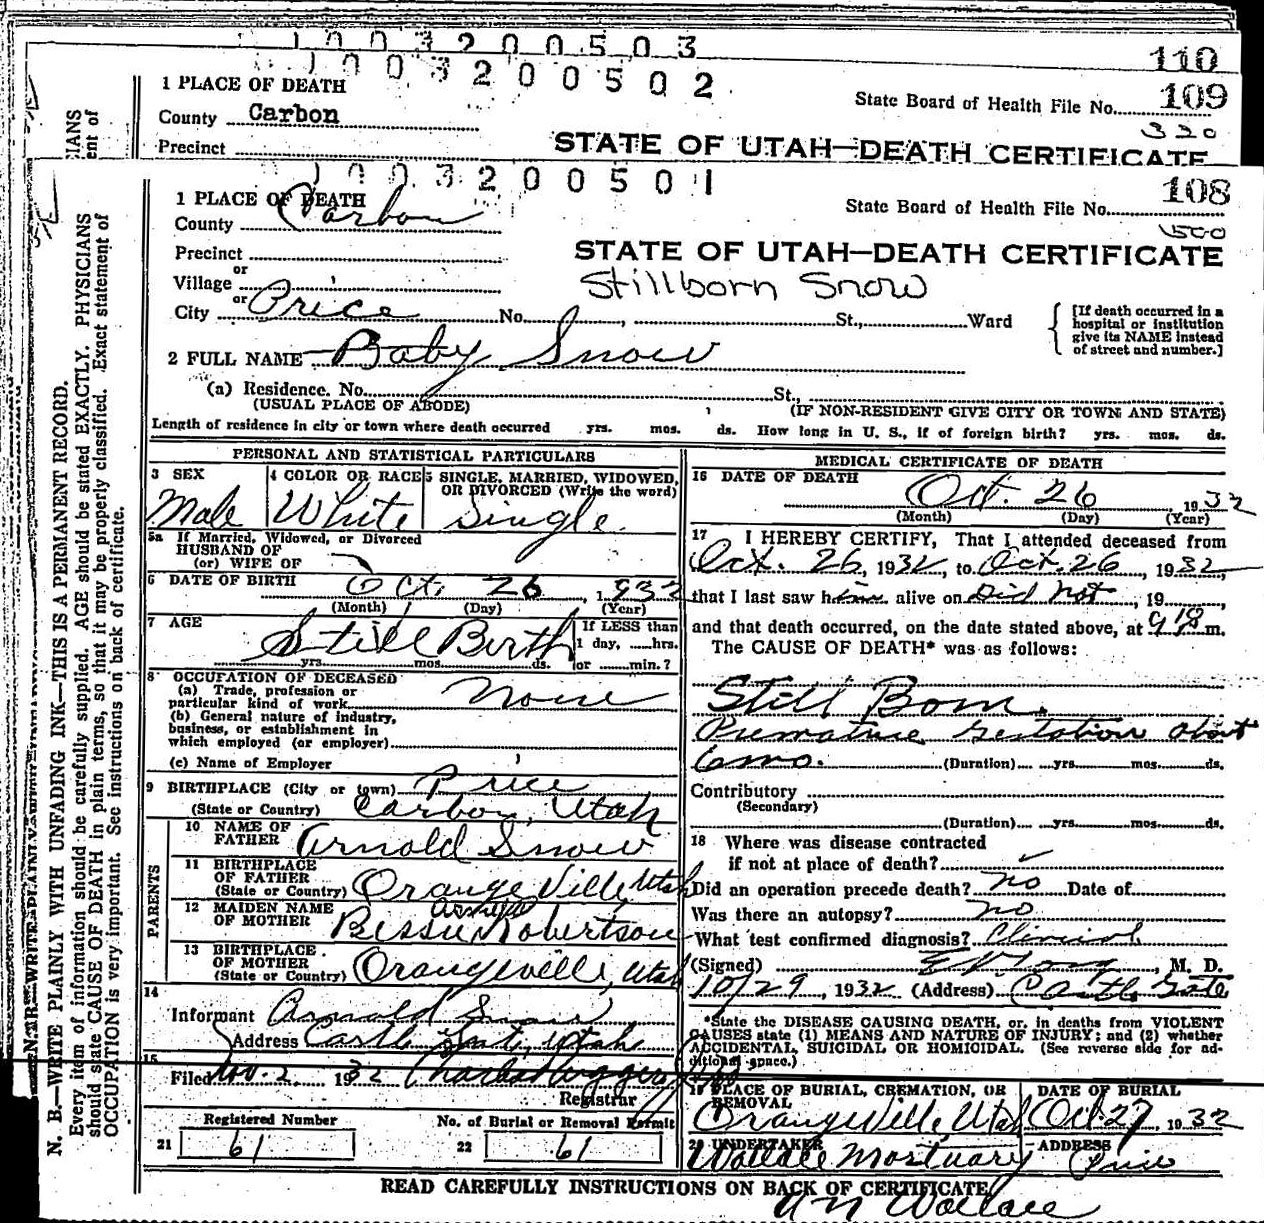 1003200503
110
1003200502
1 PLACE OF DEATH
State Board of Health File No. 109
County Carbon
320
Precinct
STATE OF UTAH—DEATH CERTIFICATE
1003200501
108
1 PLACE OF DEATH
State Board of Health File No.
County Carbon
500
Precinct
STATE OF UTAH—DEATH CERTIFICATE
or
Village
Stillborn Snow
or
City Price No. , St., Ward
[If death occurred in a
hospital or institution
give its NAME instead
of street and number.]
2 FULL NAME Baby Snow
(a) Residence. No. St.,
(USUAL PLACE OF ABODE) (IF NON-RESIDENT GIVE CITY OR TOWN AND STATE)
Length of residence in city or town where death occurred yrs. mos. ds. How long in U. S., if of foreign birth? yrs. mos. ds.
PERSONAL AND STATISTICAL PARTICULARS
3 SEX 4 COLOR OR RACE 5 SINGLE, MARRIED, WIDOWED,
OR DIVORCED (Write the word)
Male White Single
5a If Married, Widowed, or Divorced
HUSBAND OF
(or) WIFE OF
6 DATE OF BIRTH Oct. 26, 1932
(Month) (Day) (Year)
7 AGE Still Birth If LESS than
1 day, hrs.
yrs. mos. ds. or min.?
8 OCCUPATION OF DECEASED
(a) Trade, profession or
particular kind of work None
(b) General nature of industry,
business, or establishment in
which employed (or employer)
(c) Name of Employer
9 BIRTHPLACE (City or town) Price
(State or Country) Carbon, Utah
PARENTS
10 NAME OF
FATHER Arnold Snow
11 BIRTHPLACE
OF FATHER
(State or Country) Orangeville Utah
12 MAIDEN NAME
OF MOTHER Bessie Robertson
13 BIRTHPLACE
OF MOTHER
(State or Country) Orangeville, Utah
14
Informant Arnold Snow
Address Castle Gate, Utah
15
Filed Nov. 2, 1932
Registrar
Registered Number No. of Burial or Removal Permit
21 61 22 61
MEDICAL CERTIFICATE OF DEATH
16 DATE OF DEATH Oct. 26 1932
(Month) (Day) (Year)
17 I HEREBY CERTIFY, That I attended deceased from
Oct. 26, 1932, to Oct. 26, 1932,
that I last saw him alive on Did Not, 19
and that death occurred, on the date stated above, at m.
The CAUSE OF DEATH* was as follows:
Still Born.
Premature Gestation about
6 mo. (Duration) yrs. mos. ds.
Contributory
(Secondary)
(Duration) yrs. mos. ds.
18 Where was disease contracted
if not at place of death?
Did an operation precede death? no Date of
Was there an autopsy? no
What test confirmed diagnosis? Clinical
(Signed) , M. D.
10/29, 1932 (Address) Castle Gate
*State the DISEASE CAUSING DEATH, or, in deaths from VIOLENT
CAUSES state (1) MEANS AND NATURE OF INJURY; and (2) whether
ACCIDENTAL, SUICIDAL OR HOMICIDAL. (See reverse side for ad-
ditional space.)
19 PLACE OF BURIAL, CREMATION, OR
REMOVAL DATE OF BURIAL
Orangeville, Utah Oct. 27, 1932
20 UNDERTAKER ADDRESS
Wallace Mortuary Price
READ CAREFULLY INSTRUCTIONS ON BACK OF CERTIFICATE
Wallace
N. B.—WRITE PLAINLY WITH UNFADING INK—THIS IS A PERMANENT RECORD.
Every item of information should be carefully supplied. AGE should be stated EXACTLY. PHYSICIANS
should state CAUSE OF DEATH in plain terms, so that it may be properly classified. Exact statement of
OCCUPATION is very important. See instructions on back of certificate.